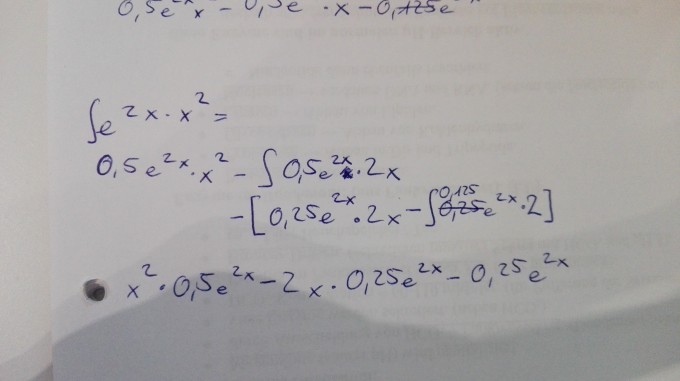 0,5e^2x x^2 - 0,5e · x - 0,125e
∫e^2x · x^2 =
0,5e^2x · x^2 - ∫0,5e^2x · 2x
-[0,25e^2x · 2x - ∫0,125 0,25e^2x · 2]
x^2 · 0,5e^2x - 2x · 0,25e^2x - 0,25e^2x